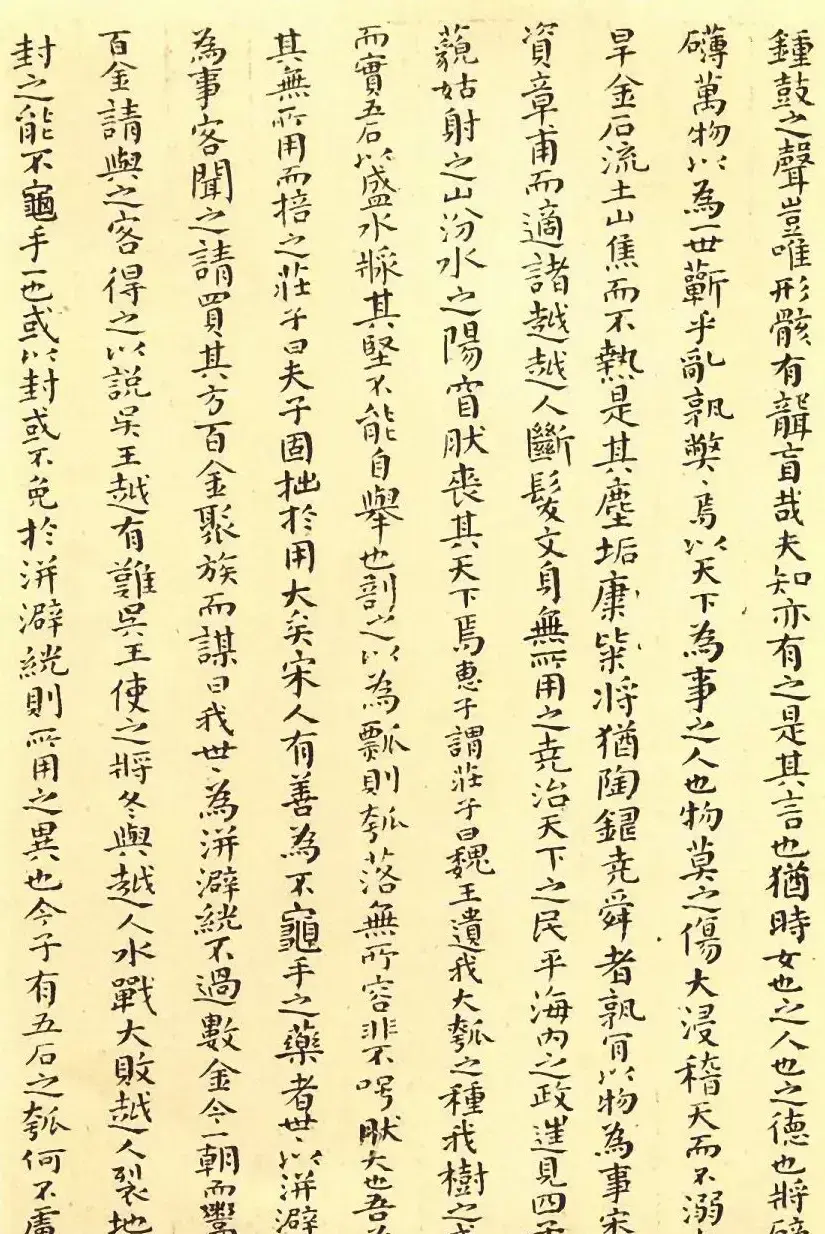 鍾鼓之聲豈唯形骸有聾盲哉夫知亦有之是其言也猶時女也之人也之德也將
礴萬物以為一世蘄乎亂孰弊〻焉以天下為事之人也物莫之傷大浸稽天而不溺
旱金石流土山焦而不熱是其塵垢康粃將猶陶鑄堯舜者孰肯以物為事宋
資章甫而適諸越越人斷髮文身無所用之堯治天下之民平海內之政進見四
藐姑射之山汾水之陽窅然喪其天下焉惠子謂莊子曰魏王遺我大瓠之種我樹之
而實五石以盛水漿其堅不能自舉也剖之以為瓢則瓠落無所容非不呺然大也吾
其無所用而掊之莊子曰夫子固拙於用大矣宋人有善為不龜手之藥者世〻以洴澼
為事客聞之請買其方百金聚族而謀曰我世〻為洴澼絖不過數金今一朝而鬻
百金請與之客得之以說吳王越有難吳王使之將冬與越人水戰大敗越人裂地
封之能不龜手一也或以封或不免於洴澼絖則所用之異也今子有五石之瓠何不慮